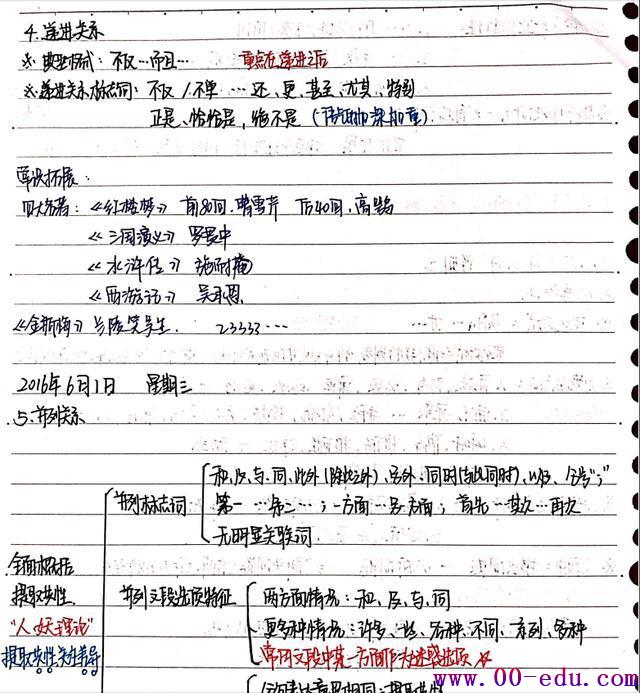 4.递进关系
※ 典型格式：不仅…而且…　重点在递进之后
※递进关系标志词：不仅/不单…还、更、甚至、尤其、特别
正是、恰恰是，绝不是（语气的加深加重）.
常识拓展：
四大名著：《红楼梦》前80回.曹雪芹　后40回.高鹗
《三国演义》罗贯中
《水浒传》施耐庵
《西游记》吴承恩
《金瓶梅》兰陵笑笑生.　23333…
2016年6月1日　星期三
5.并列关系
和、及、与、同、此外(除此之外)、另外；同时(与此同时)、以及、分号";"
并列标志词　第一…第二…；一方面…另一方面；首先…其次…再次
无明显关联词.
全面概括
提取共性.　并列文段选项特征　两方面情况：和、及、与、同
"人妖理论"　更多种情况：许多、一些、各种、不同、系列、各种
提取共性为主导　常用文段中某一方面作为迷惑选项 ☆
www.00-edu.com